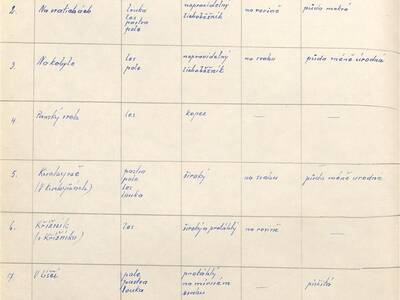 2. Na vratidlách louka nepravidelný na rovině půda mokrá
les lichoběžník
pastva
pole
3. Na kobyle les nepravidelný na svahu půda méně úrodná
pole lichoběžník
4. Panský les kopec — —
5. pastva široký na svahu půda méně úrodná
(V pole
les
louka
6. Křížník les široký a protáhlý na rovině —
(v Křížníku)
7. V Líščí pole protáhlý písčitá
pastva na mírném
louka svahu